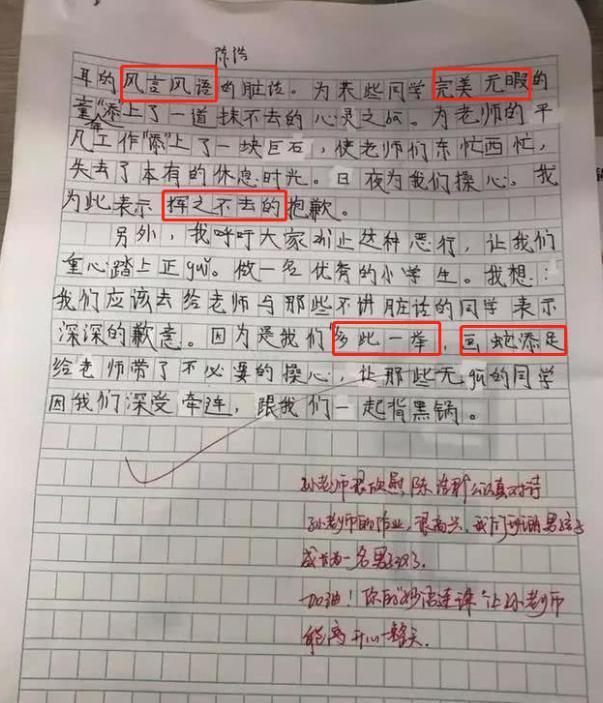 陈浩
耳的风言风语的脏话。为某些同学完美无暇的
童年"添"上了一道抹不去的心灵之
为老师的平
凡工作"添"上了一块巨石，使老师们东忙西忙，
失去了本有的休息时光。日夜为我们操心，我
为此表示挥之不去的抱歉。
另外，我呼吁大家停止这种恶行，让我们
重心踏上正guǐ。做一名优秀的小学生。我想：
我们应该去给老师与那些不讲脏话的同学表示
深深的歉意。因为是我们"多此一举，画蛇添足
给老师带了不必要的操心，让那些无gū的同学
因我们深受牵连，跟我们一起背黑锅。
孙老师很欣慰，陈浩那么认真对待
孙老师的作业，很高兴，我们可爱的男孩子
成长为一名男子汉了。
加油！你的"妙语连珠"让孙老师
能高开心一整天.